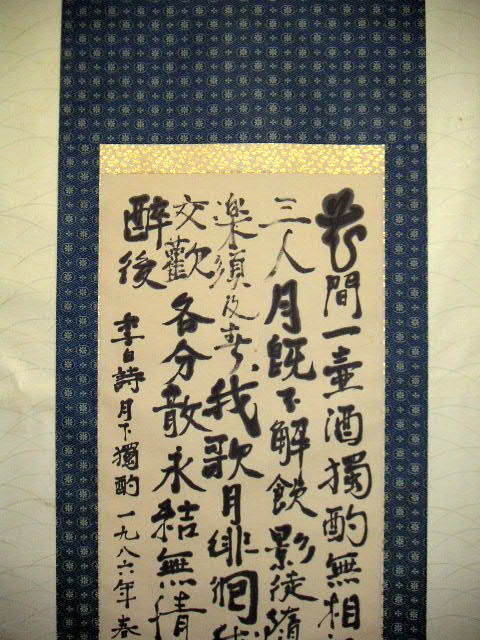 花間一壺酒獨酌無相
三人月既不解飲影徒隨
楽須及春我歌月徘徊我
交歡各分散永結無情
醉後
李白詩月下獨酌一九八六年春